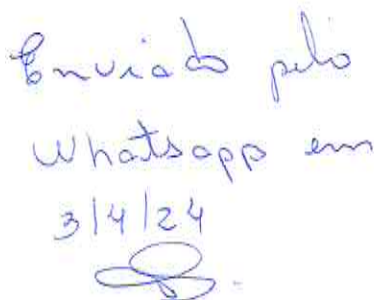 Enviado pelo
Whatsapp em
3/4/24